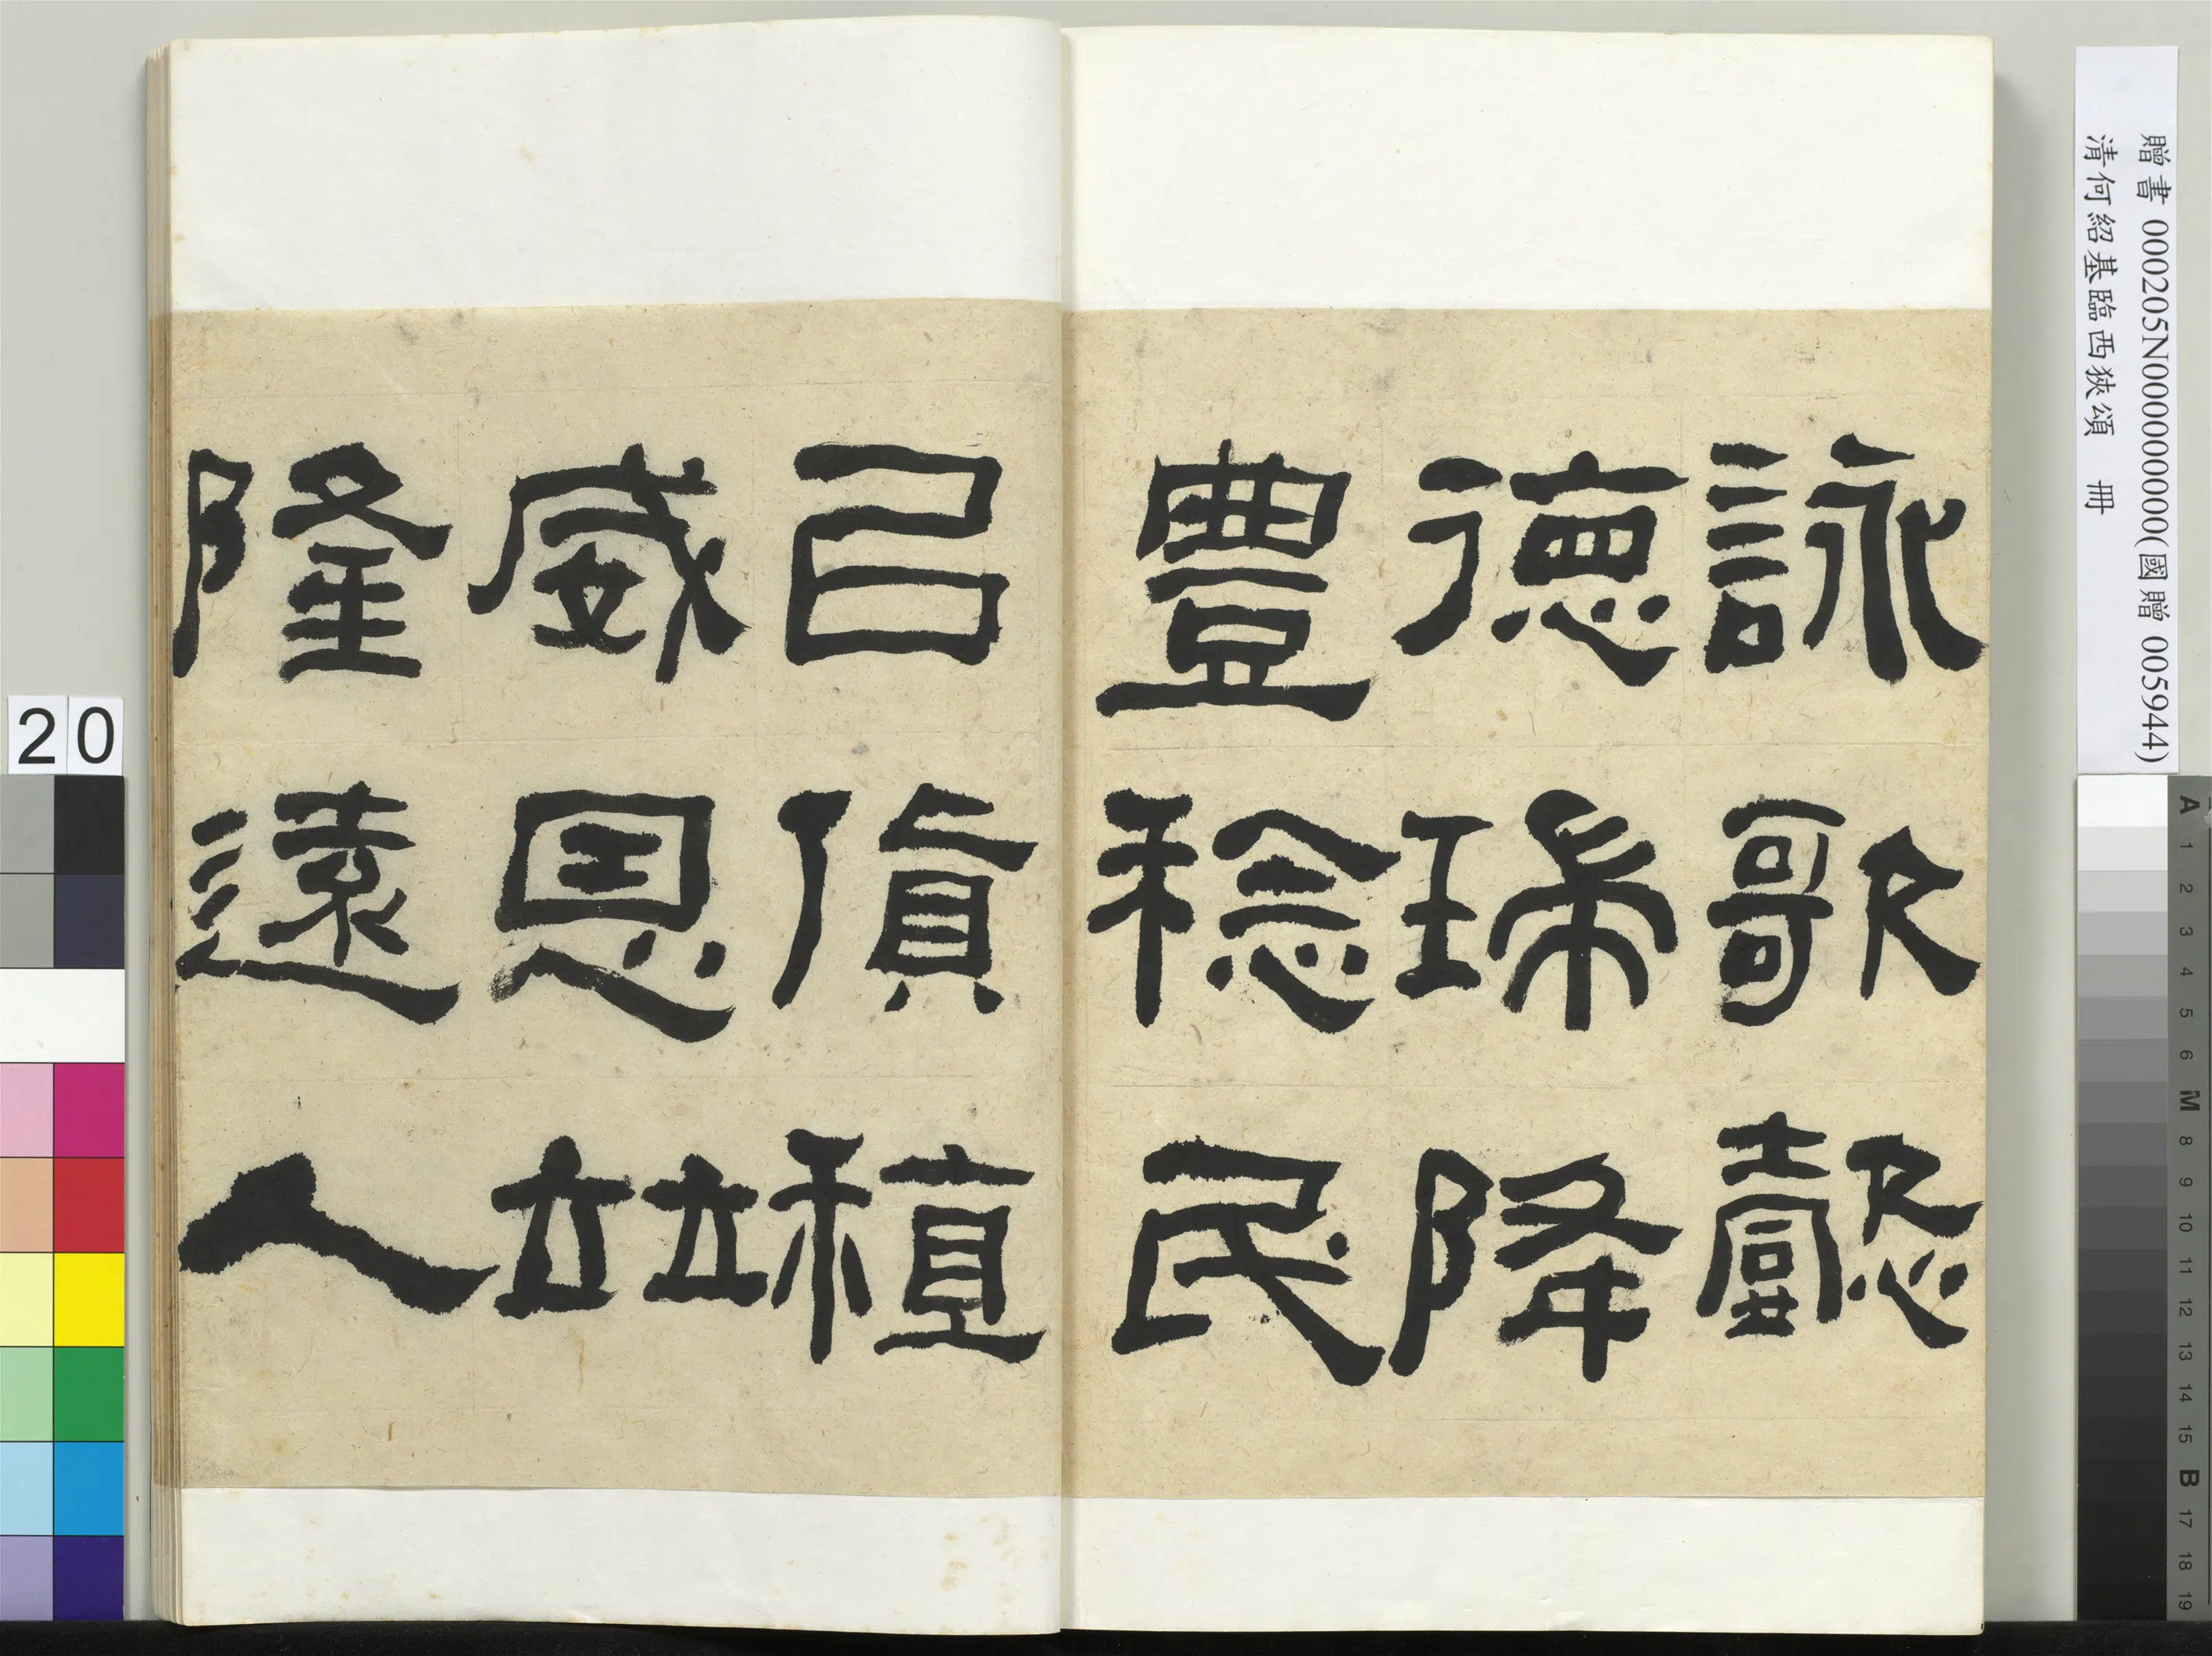 詠歌懿
德瑞降
豊稔民
㠯貨稙
威恩竝
隆遠人
贈書 000205N000000000(國贈 005944)
清何紹基臨西狹頌　冊
20
A 1 2 3 4 5 6 M 8 9 10 11 12 13 14 15 B 17 18 19